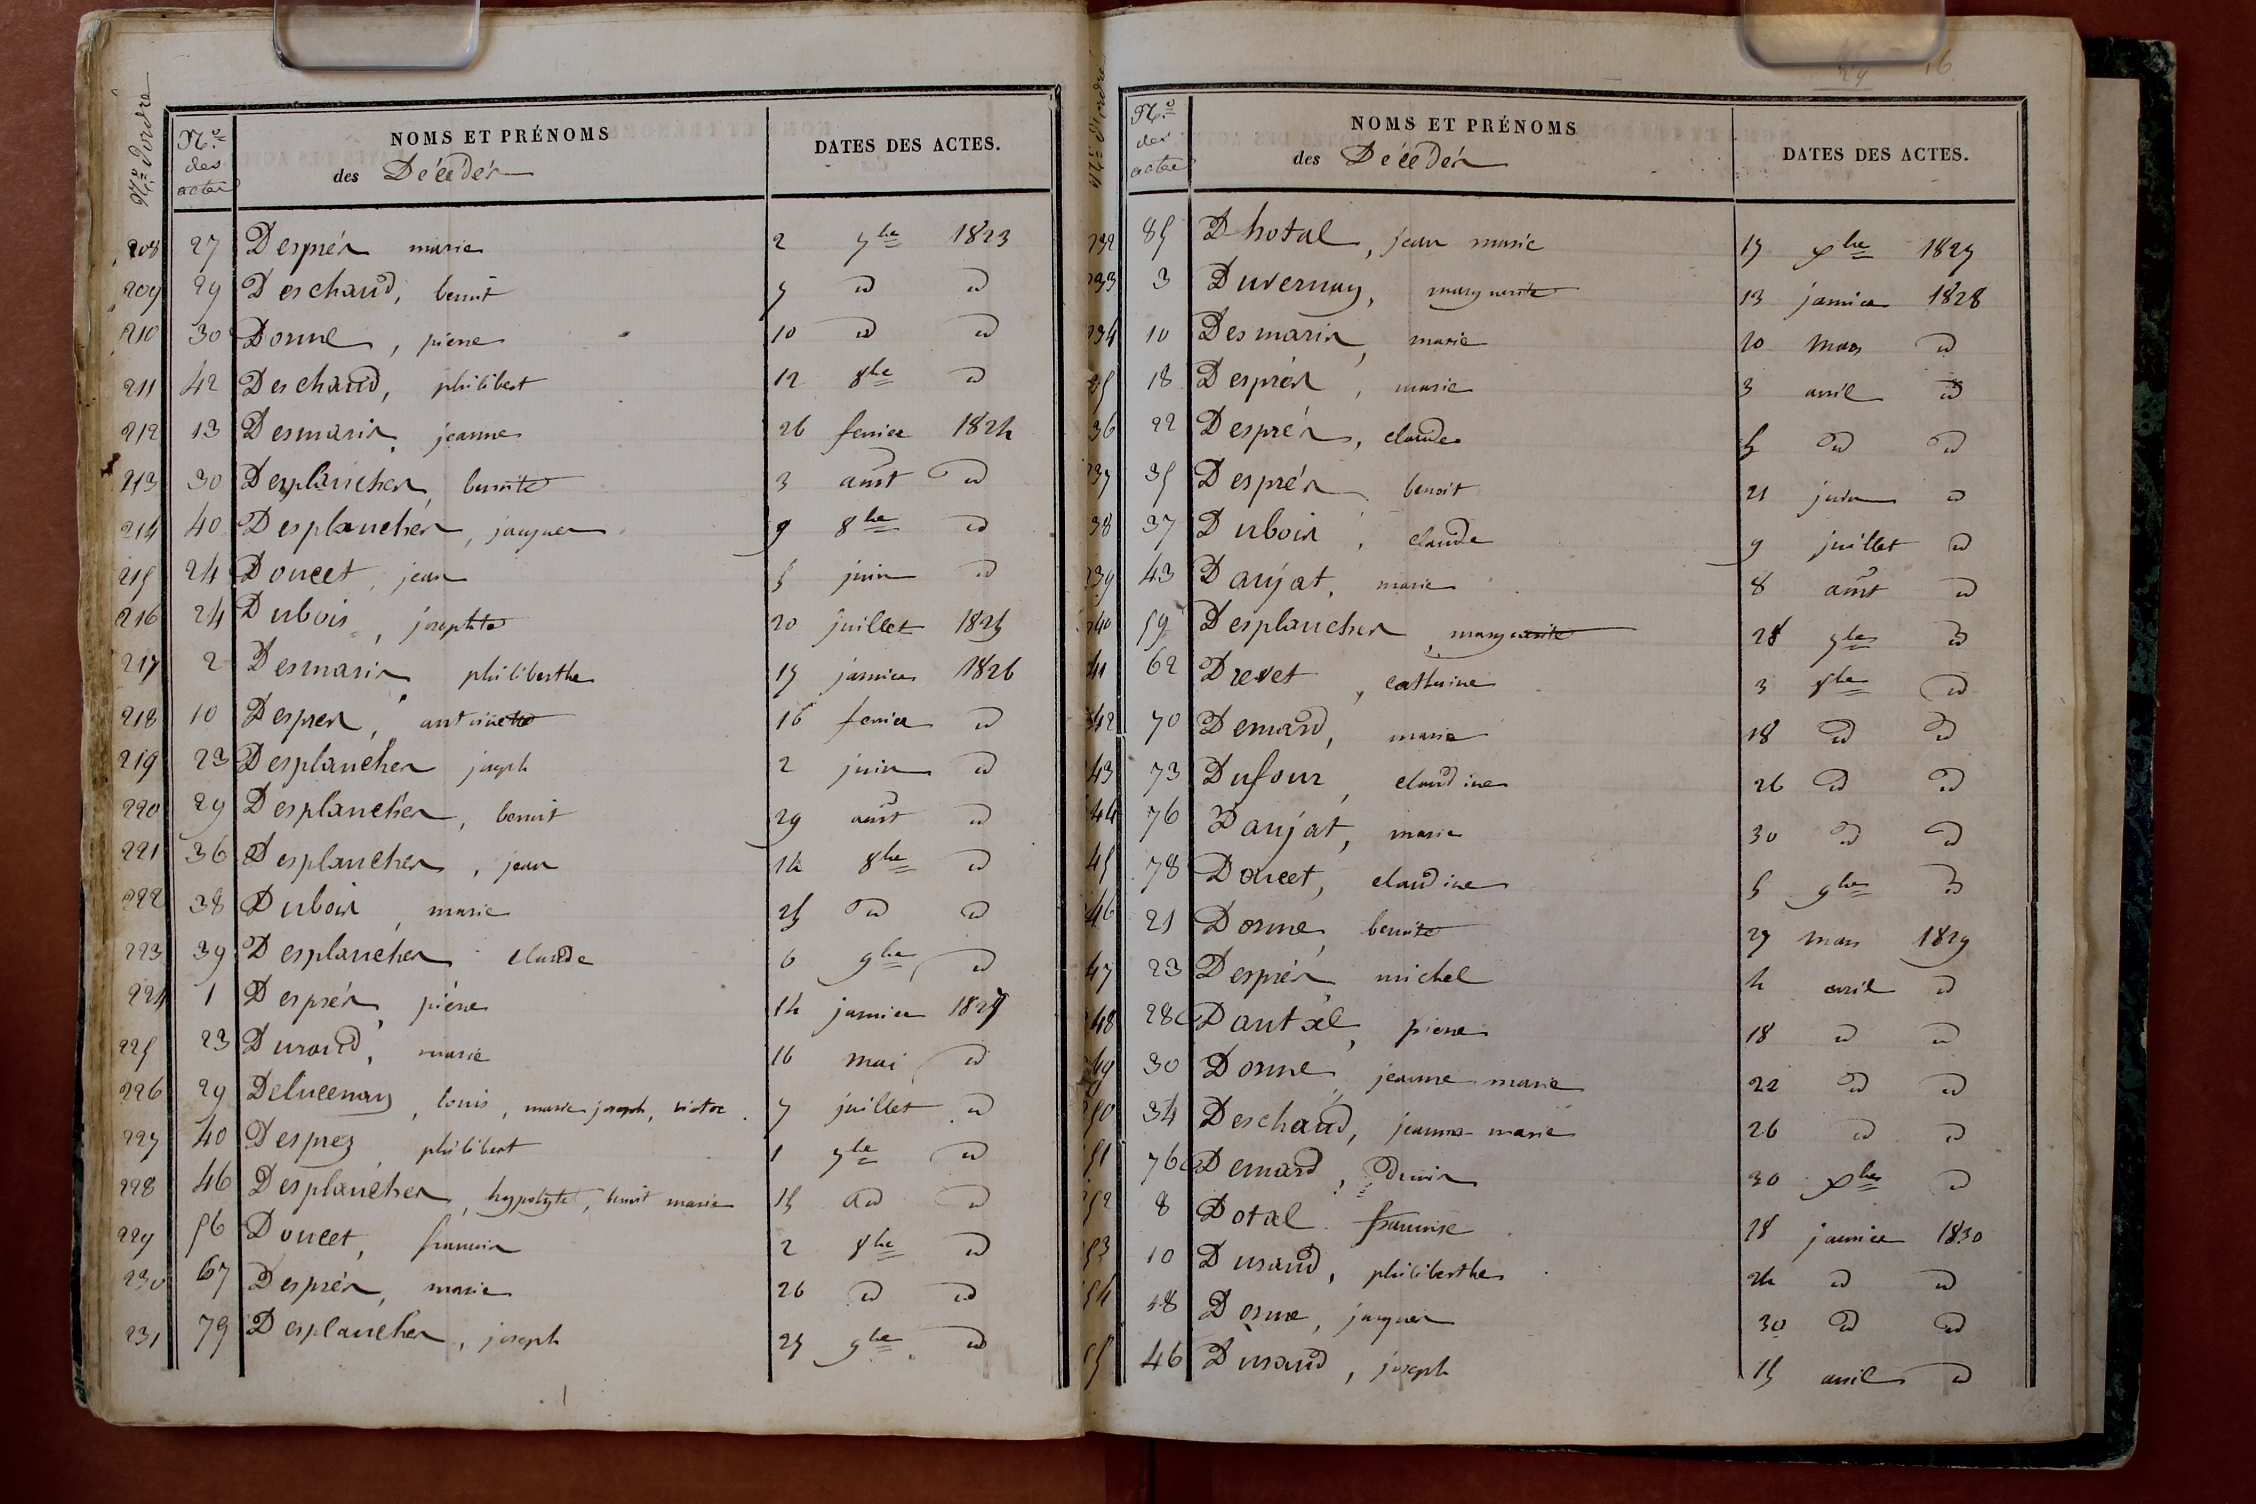 Nos d'ordre
Nos des actes
NOMS ET PRÉNOMS
des Décédés
DATES DES ACTES.
208 27 Desprès marie 2 7bre 1823
209 29 Deschaud, benoit 7 id id
210 30 Dorme, pierre 10 id id
211 42 Deschaud, philibert 12 8bre id
212 13 Desmaris, jeanne 26 fevrier 1824
213 30 Desplanches, benoite 3 aout id
214 40 Desplanches, jacques 9 8bre id
215 24 Doucet, jean 5 juin id
216 24 Dubois, josephte 20 juillet 1825
217 2 Desmaris philiberthe 17 janvier 1826
218 10 Despres, antoinette 16 fevrier id
219 23 Desplanches joseph 2 juin id
220 29 Desplanches, benoit 29 aout id
221 36 Desplanches, jean 14 8bre id
222 38 Dubois, marie 25 id id
223 39 Desplanches claude 6 9bre id
224 1 Desprès, pierre 14 janvier 1827
225 23 Durand, marie 16 mai id
226 29 Delucenay, louis, marie joseph, victor 7 juillet id
227 40 Desprez, philibert 1 7bre id
228 46 Desplanches, hypolyte, benoit marie 15 id id
229 56 Doucet, francois 2 8bre id
230 67 Desprès, marie 26 id id
231 79 Desplanches, joseph 27 9bre id
16
Nos d'ordre
Nos des actes
NOMS ET PRÉNOMS
des Décédés
DATES DES ACTES.
232 85 Dhotal, jean marie 17 xbre 1827
233 3 Duvernay, marguerite 13 janvier 1828
234 10 Desmaris, marie 20 mars id
35 18 Desprès, marie 3 avril id
36 22 Desprès, claude 5 id id
237 35 Desprès benoit 21 juin id
38 37 Dubois, claude 9 juillet id
239 43 Daujat, marie 8 aout id
240 59 Desplanches, marguerite 28 7bre id
41 62 Drevet, catherine 3 8bre id
242 70 Demard, marie 18 id id
43 73 Dufour, claudine 26 id id
44 76 Daujat, marie 30 id id
45 78 Doucet, claudine 5 9bre id
46 21 Dorme, benoite 27 mars 1829
47 23 Desprès michel 4 avril id
248 28 Dautal, pierre 18 id id
49 30 Dorme, jeanne marie 22 id id
50 34 Deschaud, jeanne marie 26 id id
51 76 Demard, Denis 30 xbre id
52 8 Dotal francoise 18 janvier 1830
53 10 Durand, philiberthe 24 id id
54 18 Dorme, jacques 30 id id
55 46 Durand, joseph 15 avril id